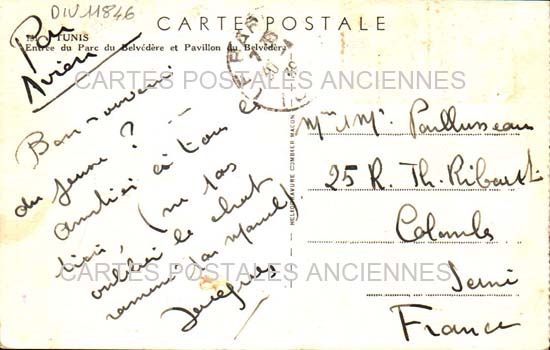 DIV11846
CARTE POSTALE
TUNIS
Entrée du Parc du Belvédère et Pavillon du Belvédère
Par
Avion
CARTES POSTALES ANCIENNES
Bon souvenir
du jeune ?
à tous les
trois, (ne pas
oublier le chat
ramené par Marcel)
Jacques
HELIOGRAVURE COMBIER MACON
Mme & Mr
25 R. Th. Ribout
Colombes
Seine
France
CARTES POSTALES ANCIENNES